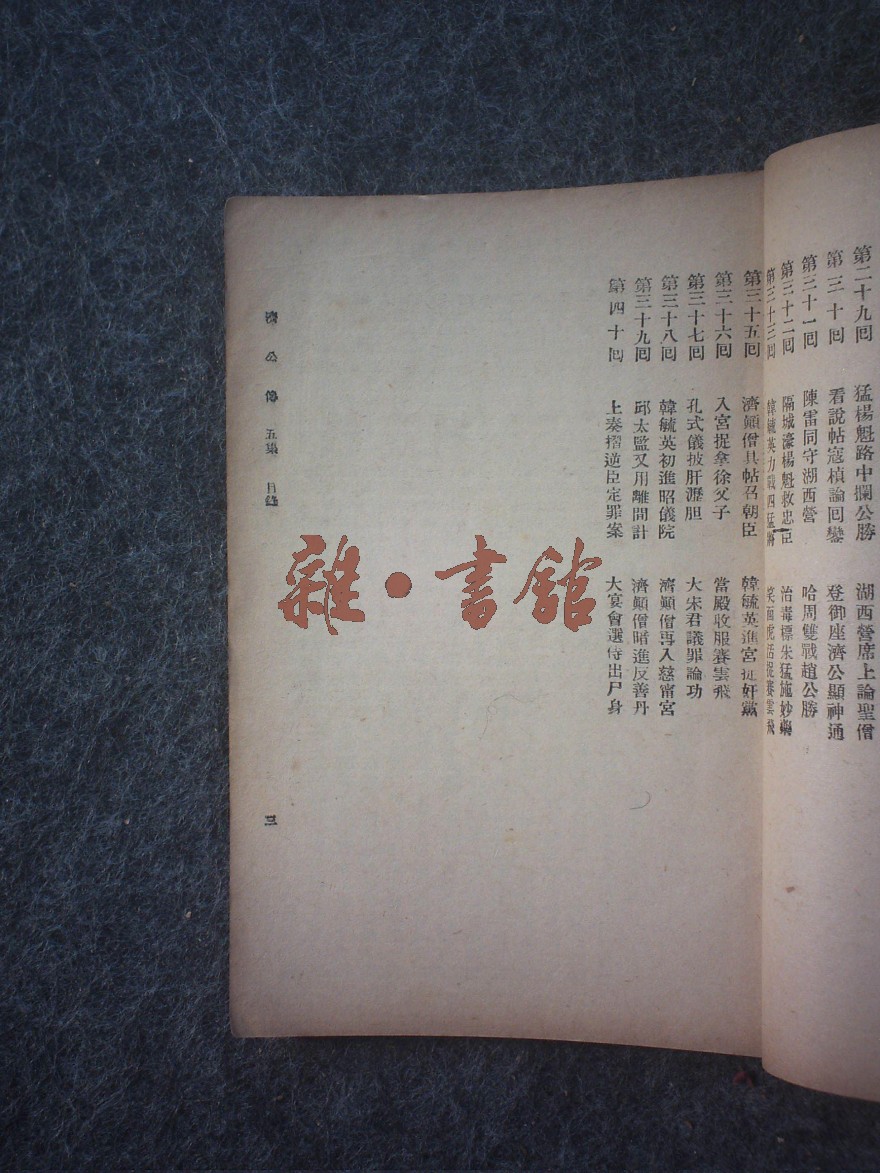 第二十九回 猛楊魁路中攔公勝 湖西營席上論聖僧
第三十回 看說帖寇楨論回鑾 登御座濟公顯神通
第三十一回 陳雷同守湖西營 哈周雙戰趙公勝
第三十二回 隔城濠楊魁救忠臣 治毒標朱猛施妙藥
第三十三回 韓毓英力戰四猛將 笑面虎活捉賽雲飛
第三十五回 濟顛僧具帖召朝臣 韓毓英進宮捉奸黨
第三十六回 入宮捉拿徐父子 當殿收服賽雲飛
第三十七回 孔式儀披肝瀝胆 大宋君議罪論功
第三十八回 韓毓英初進昭儀院 濟顛僧再入慈甯宮
第三十九回 邱太監又用離間計 濟顛僧暗進反善丹
第四十回 上奏摺逆臣定罪案 大宴會選侍出尸身
濟公傳 五集 目錄
三
雜·書館